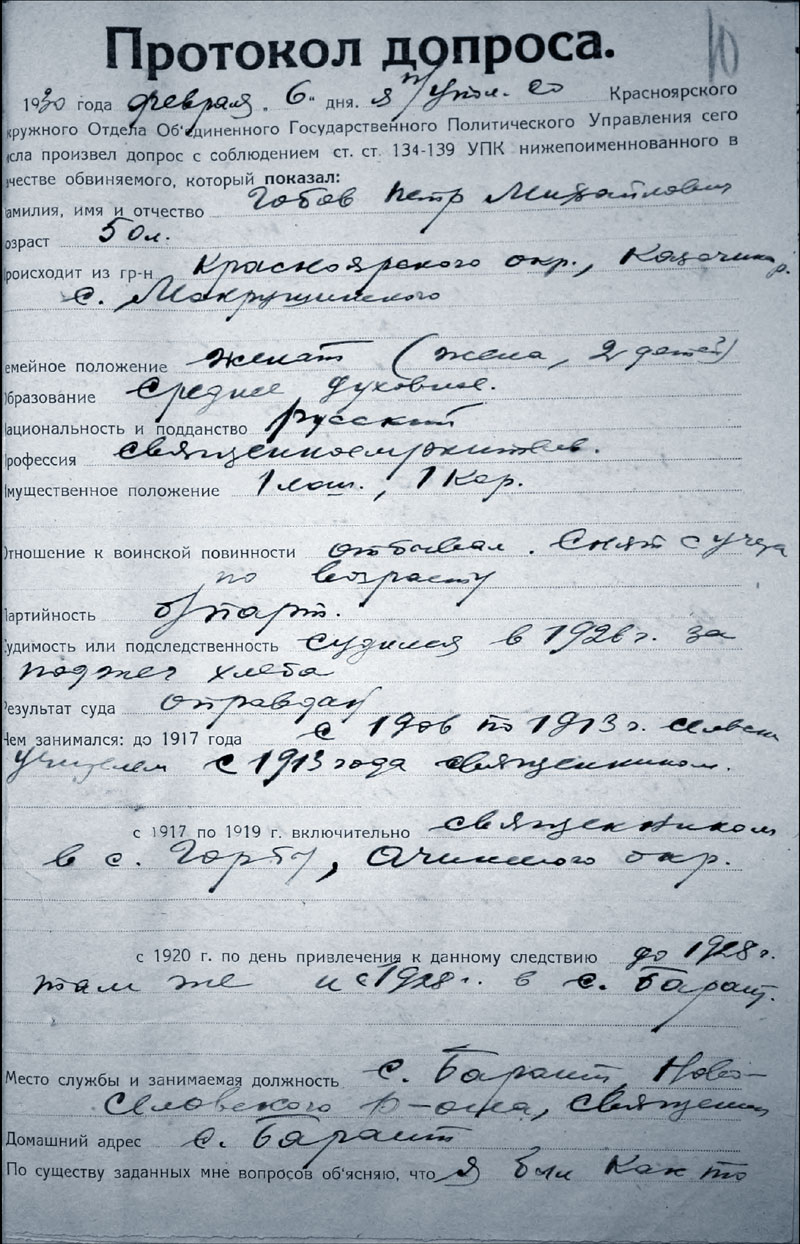 10
Протокол допроса.
1930 года февраля „6" дня. Я Красноярского
кружного Отдела Об'единенного Государственного Политического Управления сего
исла произвел допрос с соблюдением ст. ст. 134-139 УПК нижепоименнованного в
ачестве обвиняемого, который показал:
амилия, имя и отчество Гобов Петр Михайлович
озраст 50 л.
роисходит из гр-н Красноярского окр., Казачинск. р.
с. Мокрушинского
емейное положение женат (жена, 2 детей)
бразование среднее духовное.
ациональность и подданство русский
рофессия священнослужитель.
мущественное положение 1 лош., 1 кор.
Отношение к воинской повинности отбывал. Снят с учета
по возрасту
Партийность б/парт.
Судимость или подследственность судился в 1926 г. за
поджег хлеба
Результат суда оправдан
Чем занимался: до 1917 года с 1906 по 1913 г. сельск
учителем с 1913 года священником.
с 1917 по 1919 г. включительно священником
в с. Ачинского окр.
с 1920 г. по день привлечения к данному следствию до 1928 г.
там же и с 1928 г. в с. Бараит.
Место службы и занимаемая должность с. Бараит Ново-
селовского р-она, священник
Домашний адрес с. Бараит
По существу заданных мне вопросов об'ясняю, что я был как то